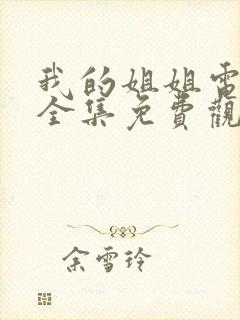 我的姐姐電
全集免費觀
余雪玲